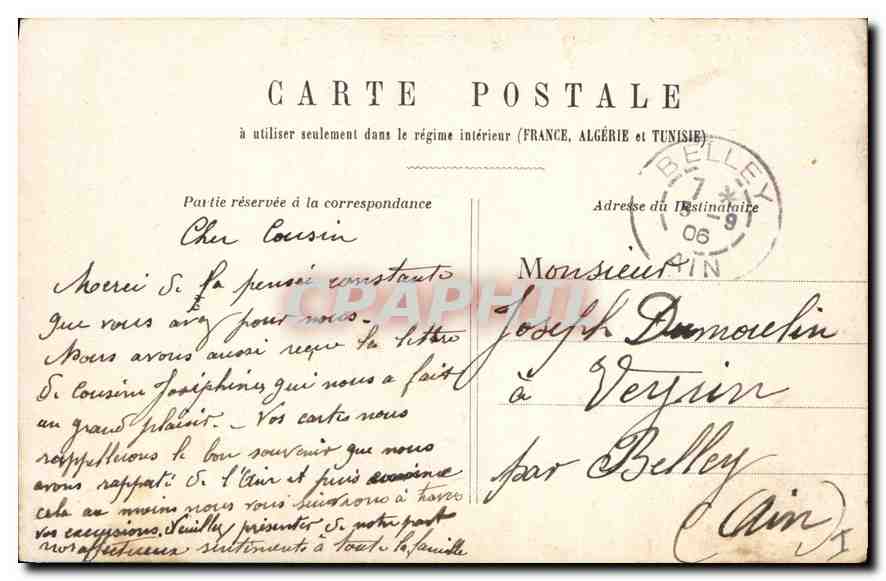 CARTE POSTALE
à utiliser seulement dans le régime intérieur (FRANCE, ALGÉRIE et TUNISIE)
BELLEY
7 *
5 -9
06
AIN
Partie réservée à la correspondance
Adresse du Destinataire
Cher Cousin
Merci de la pensée constante
que vous avez pour nous.
Nous avons aussi reçu la lettre
de cousine Joséphine, qui nous a fait
un grand plaisir. - Vos cartes nous
rappellerons le bon souvenir que nous
avons rapporté de l'Ain et puis comme
cela au moins nous vous suivrons à travers
vos excursions. Veuillez présenter de notre part
nos affectueux sentiments à toute la famille
Monsieur
Joseph Dumoulin
à Veyrin
par Belley
(Ain)
I
CPAPHIL